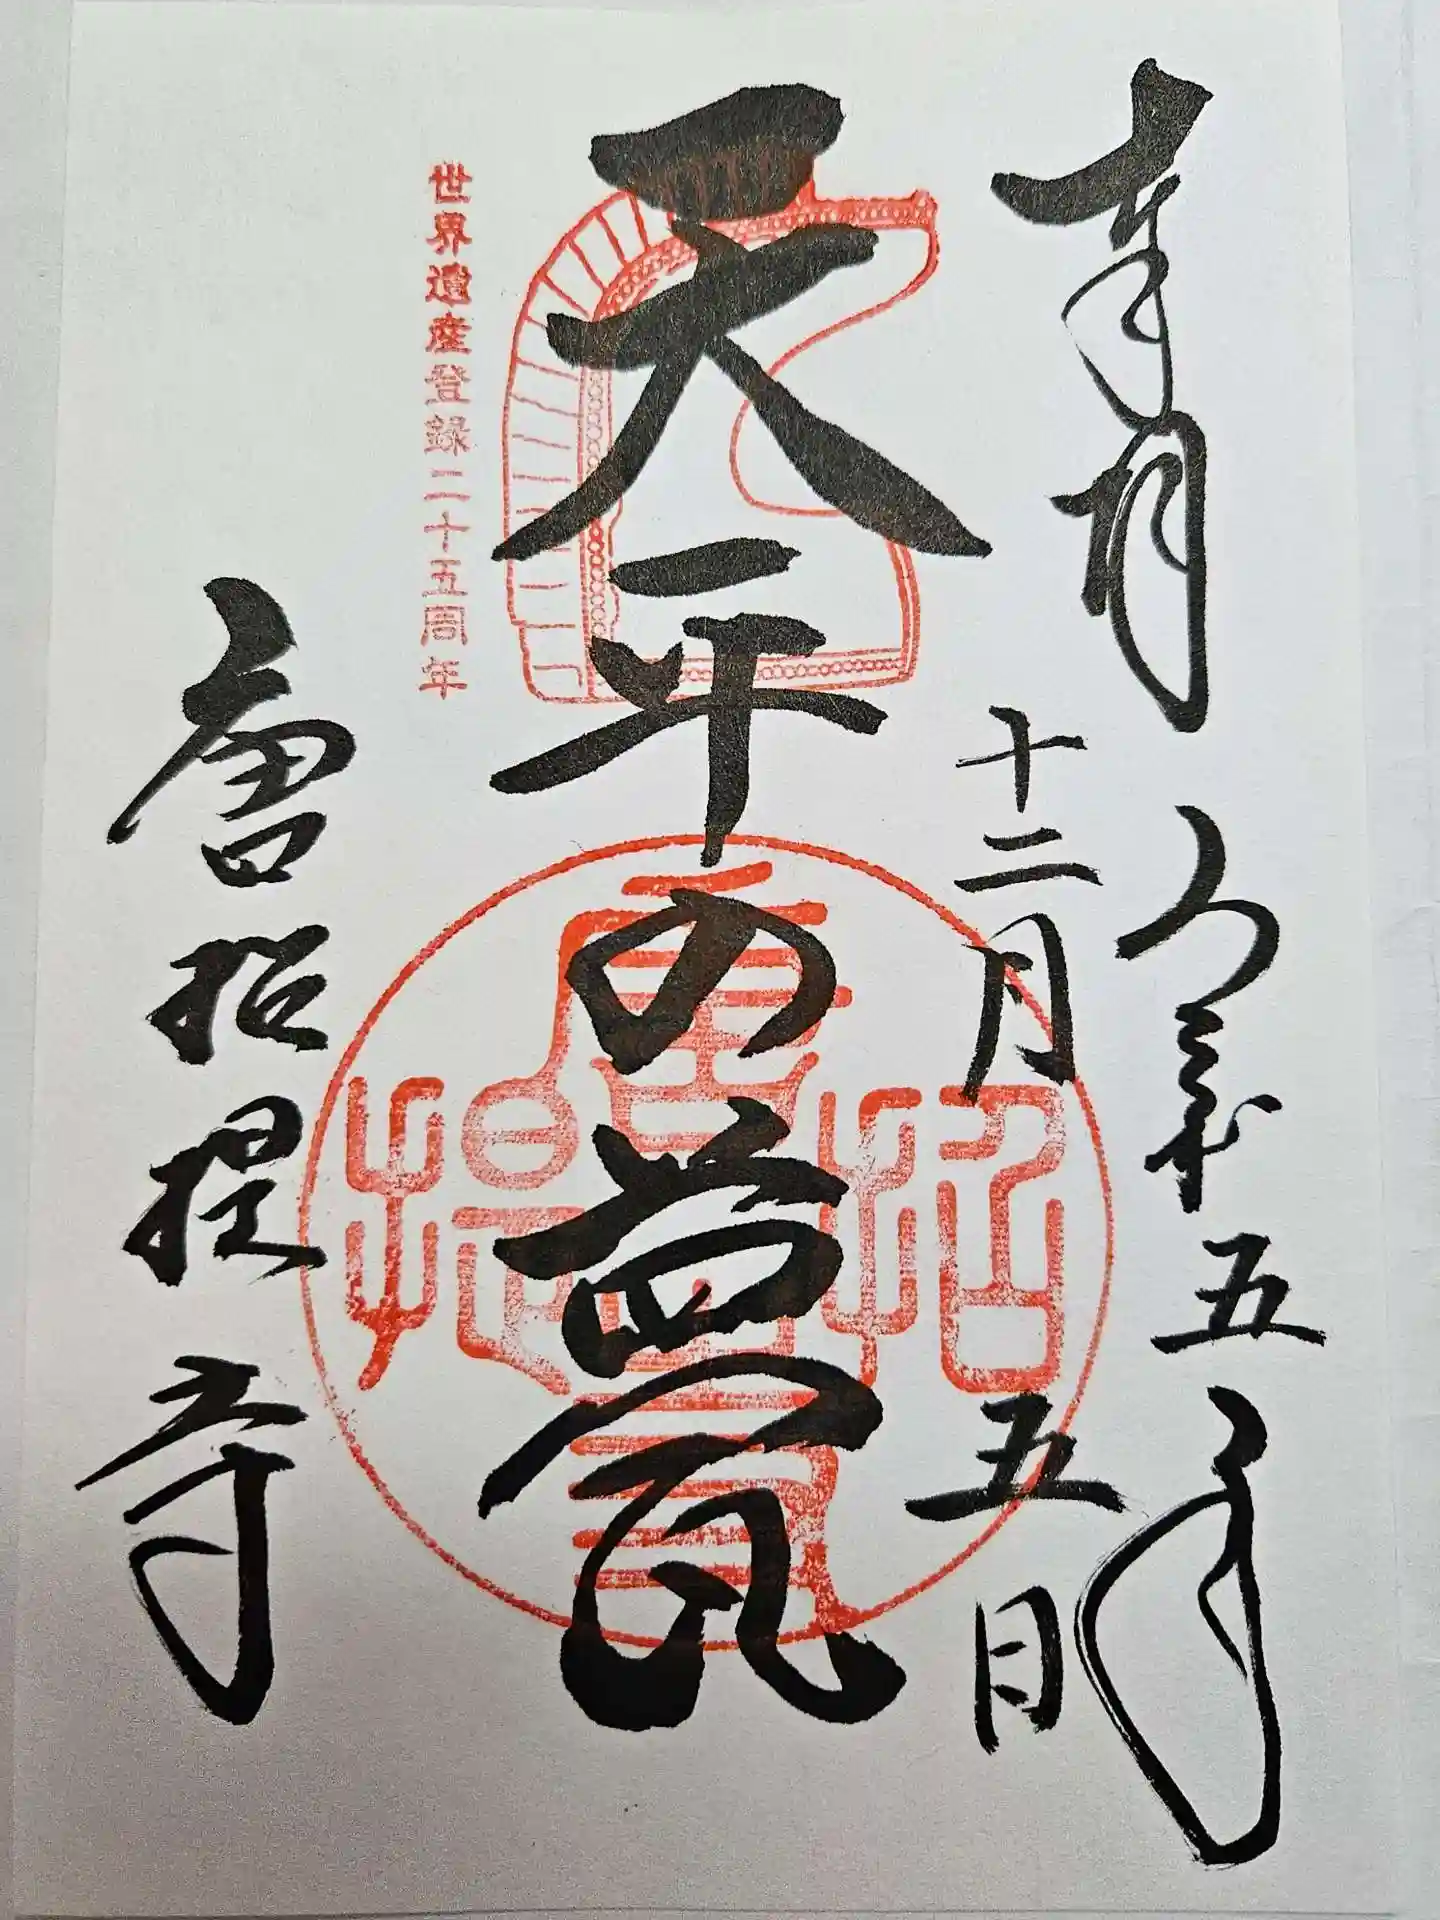 奉拝
令和五年
十二月五日
天平の甍
世界遺産登録二十五周年
唐招提寺